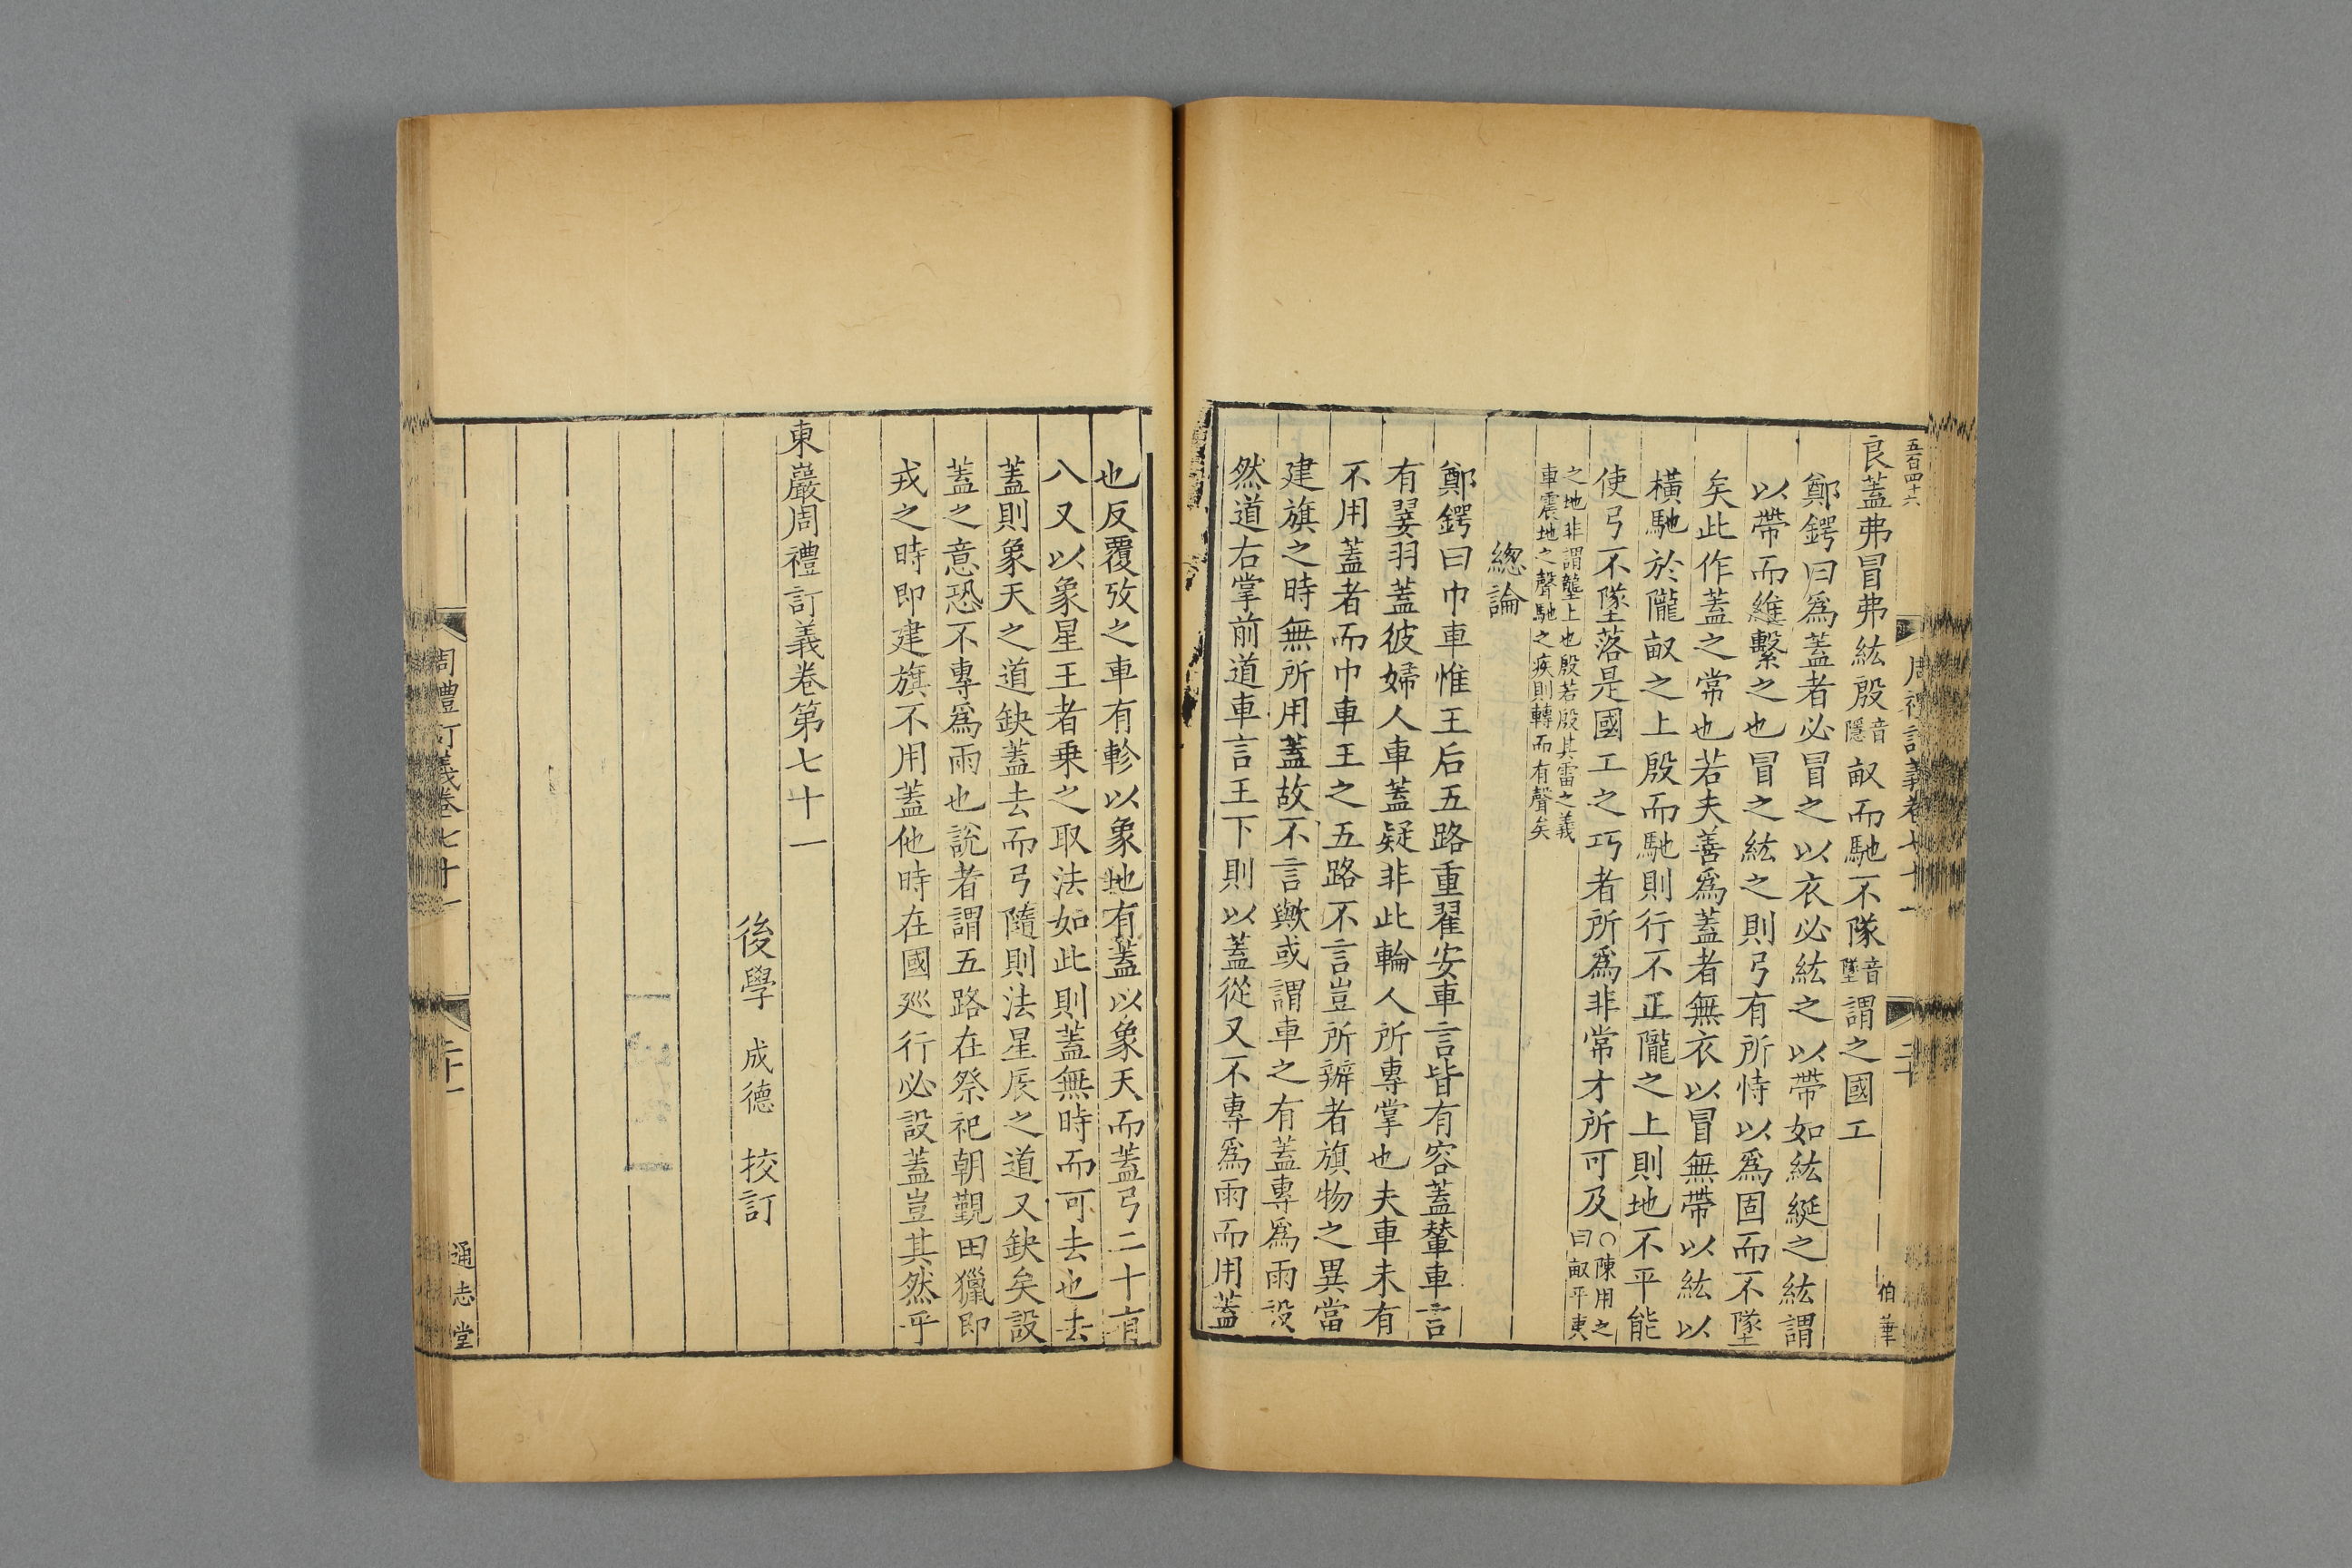 五百四十六
周禮訂義卷七十一
二十
伯華
良蓋弗冒弗紘殷音隱畝而馳不隊音墜謂之國工
鄭鍔曰爲蓋者必冒之以衣必紘之以帶如紘綖之紘謂
以帶而維繫之也冒之紘之則弓有所恃以爲固而不墜
矣此作蓋之常也若夫善爲蓋者無衣以冒無帶以紘以
橫馳於隴畝之上殷而馳則行不正隴之上則地不平能
使弓不墜落是國工之巧者所爲非常才所可及○陳用之曰畝平夷
之地非謂壟上也殷若殷其雷之義
車震地之聲馳之疾則轉而有聲矣
緫論
鄭鍔曰巾車惟王后五路重翟安車言皆有容蓋輦車言
有翣羽蓋彼婦人車蓋疑非此輪人所專掌也夫車未有
不用蓋者而巾車王之五路不言豈所辨者旗物之異當
建旗之時無所用蓋故不言歟或謂車之有蓋專爲雨設
然道右掌前道車言王下則以蓋從又不專爲雨而用蓋
也反覆攷之車有軫以象地有蓋以象天而蓋弓二十有
八又以象星王者乗之取法如此則蓋無時而可去也去
蓋則象天之道缺蓋去而弓隨則法星辰之道又缺矣設
蓋之意恐不專爲雨也說者謂五路在祭祀朝覲田獵即
戎之時即建旗不用蓋他時在國廵行必設蓋豈其然乎
東巖周禮訂義卷第七十一
後學 成德 挍訂
周禮訂義卷七十一
二十一
通志堂